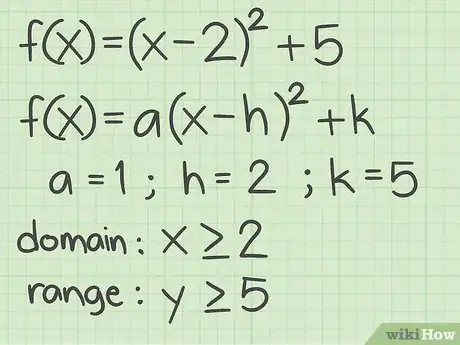 f(x)=(x-2)²+5
f(x)=a(x-h)²+k
a=1; h=2 ; k=5
domain: x≥2
range: y≥5
wikiHow